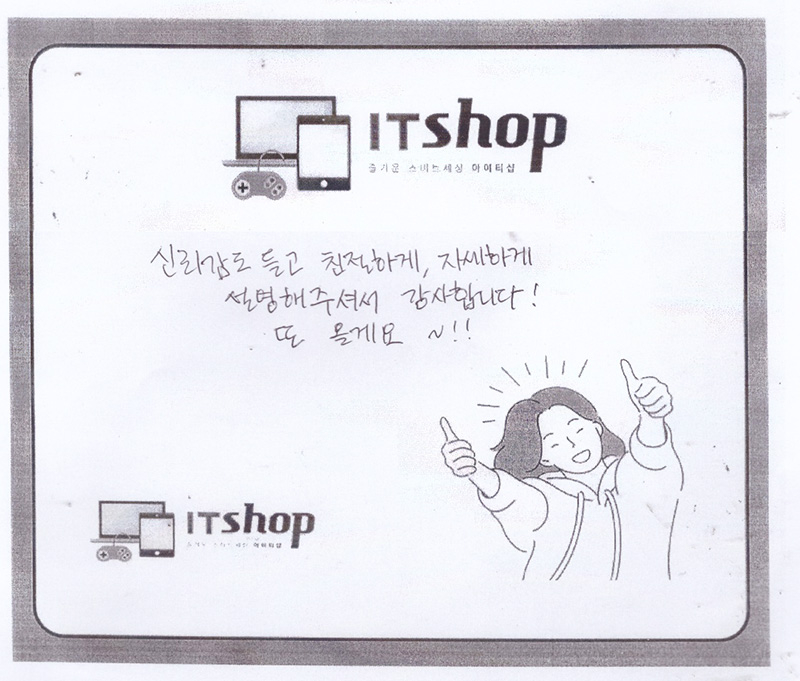 ITshop
즐거운 스마트세상 아이티샵
신뢰감도 들고 친절하게, 자세하게
설명해주셔서 감사합니다!
또 올게요 ~!!
ITshop
즐거운 스마트세상 아이티샵